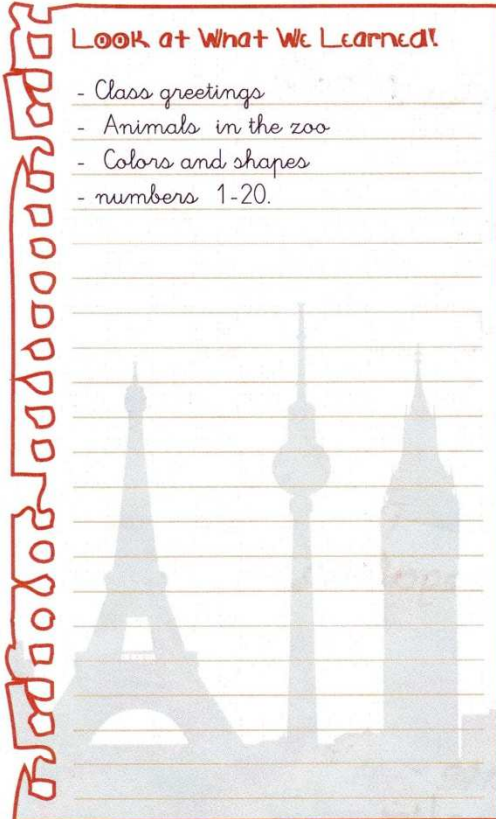 Look at What We Learned!
- Class greetings
- Animals in the zoo
- Colors and shapes
- numbers 1-20.